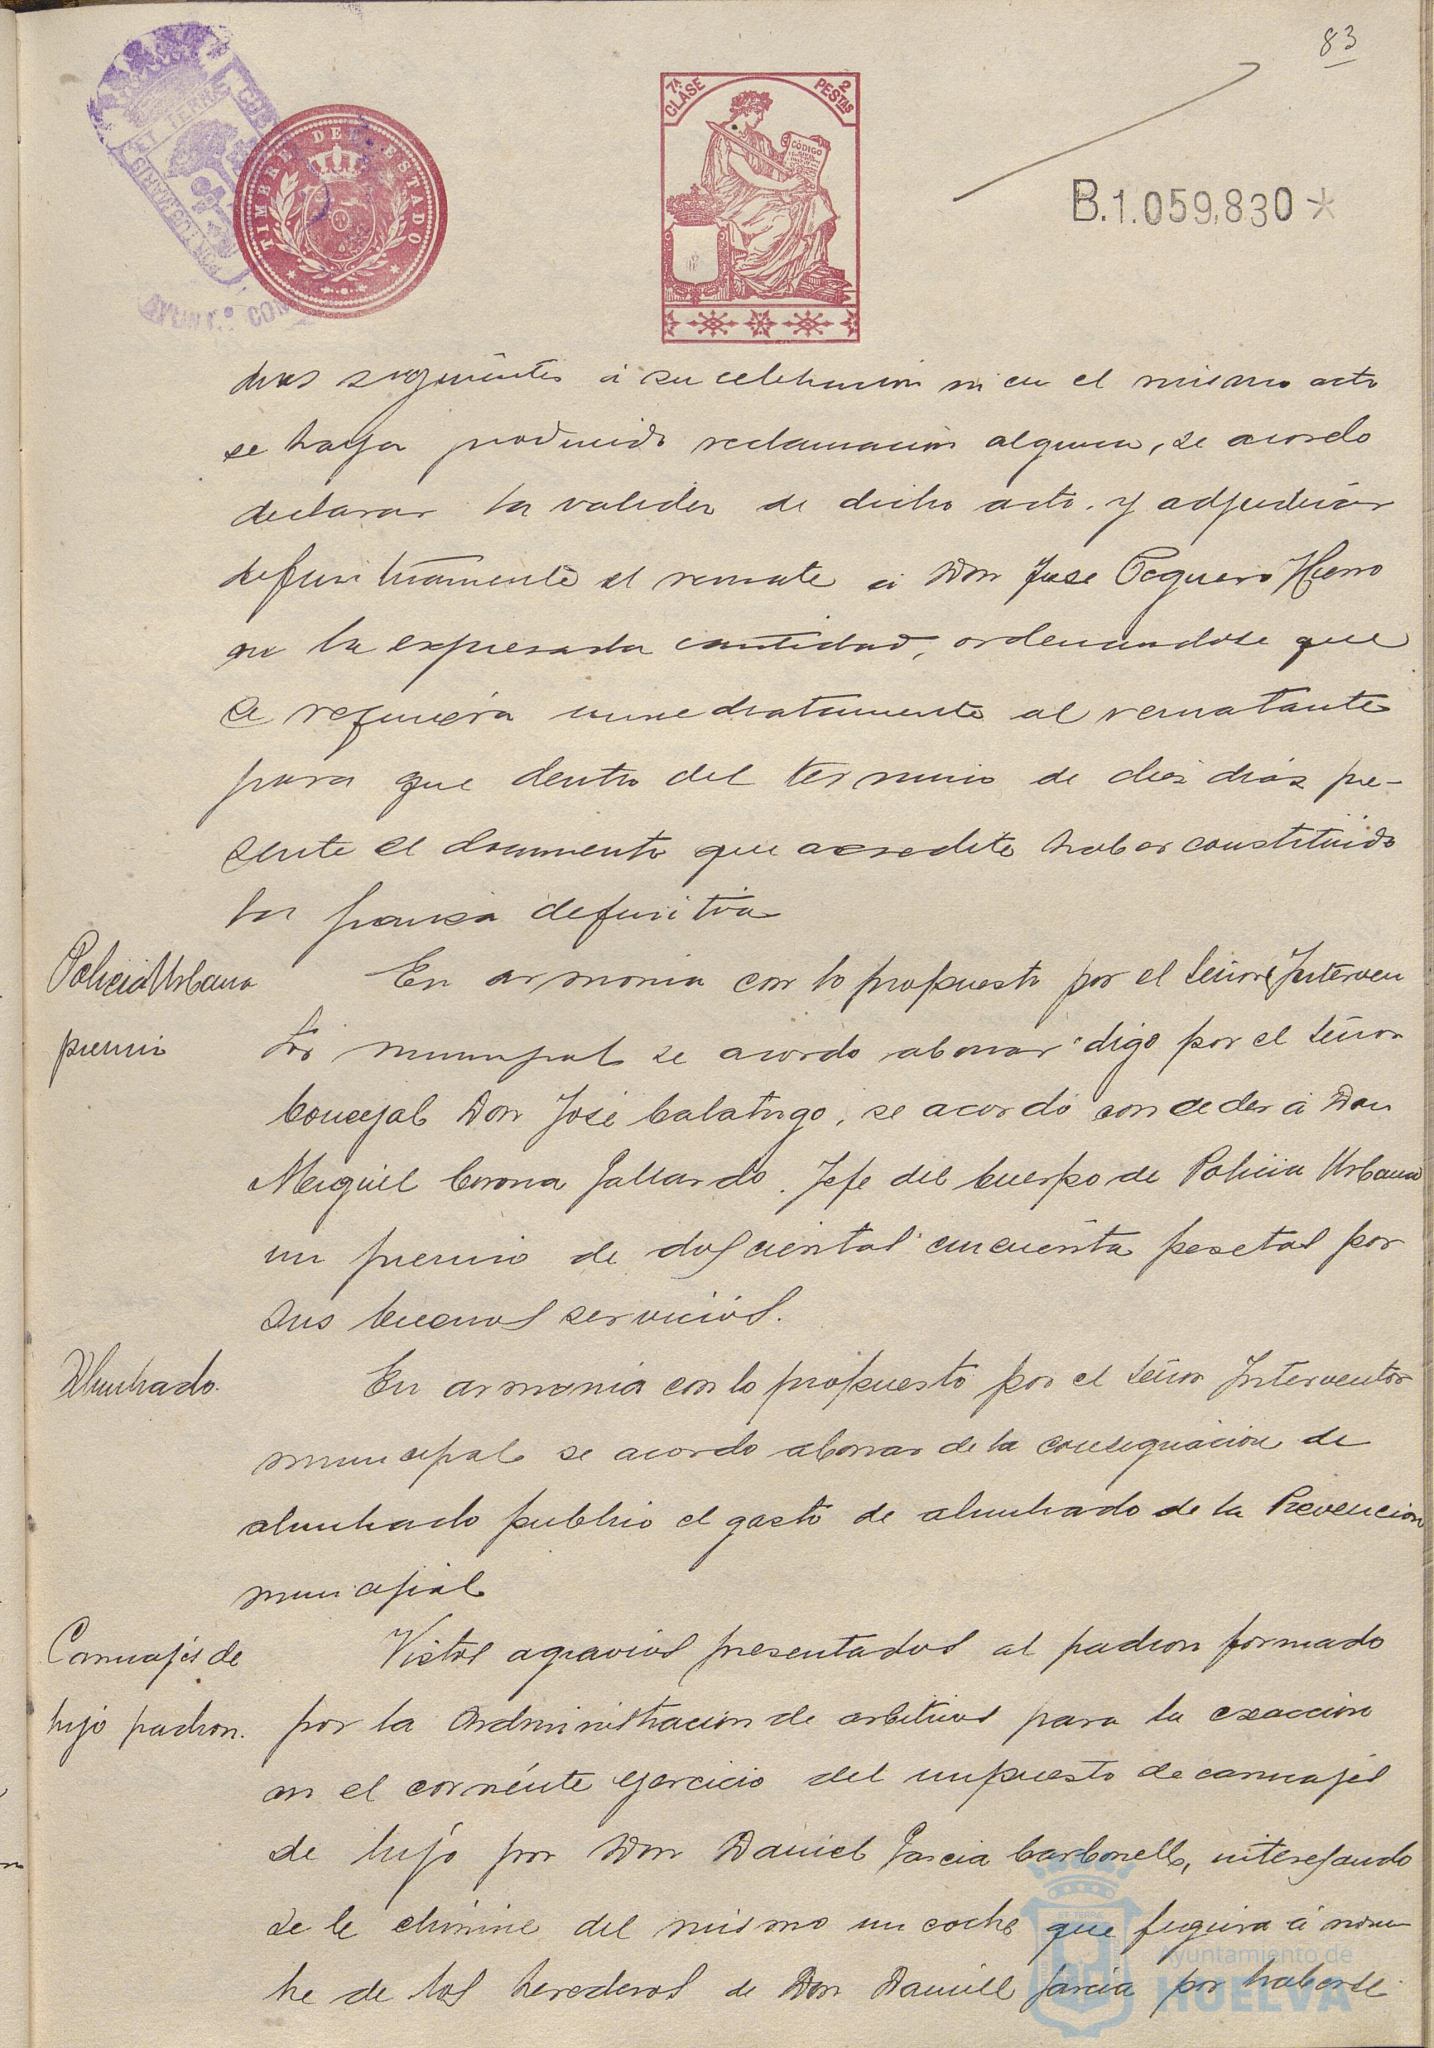 83
7ª CLASE
2 PESTAS
CÓDIGO
TIMBRE DEL ESTADO
B.1.059,830*
siguientes á su celebracion ni en el mismo acto
se haya producido reclamación alguna, se acordo
declarar la validez de dicho acto. y adjudicar
definitivamente el remate á Don José Peguero Hierro
en la expresada cantidad, ordenandose que
se requiera inmediatamente al rematante
para que dentro del termino de dies dias pre-
sente el documento que acredite haber constituido
la fianza definitiva
Policia Urbana
premio
En armonia con lo propuesto por el Señor Interven
tor municipal se acordo abonar digo por el Señor
Concejal Don José Calatrigo, se acordó conceder á Don
Miguel Corona Gallardo. Jefe del Cuerpo de Policia Urbana
un premio de doscientas cincuenta pesetas por
sus buenos servicios.
Alumbrado.
En armonia con lo propuesto por el Señor Interventor
municipal se acordo abonar de la consignacion de
alumbrado publico el gasto de alumbrado de la Prevencion
municipal
Carruajes de
lujo padron.
Vistos agravios presentados al padron formado
por la Administracion de arbitrios para la exaccion
en el corriente ejercicio del impuesto de carruajes
de lujo por Don Daniel Garcia Carbonell, interesando
se le elimine del mismo un coche que figura á nom
bre de los herederos de Don Daniel Garcia por haberse
Ayuntamiento de
HUELVA